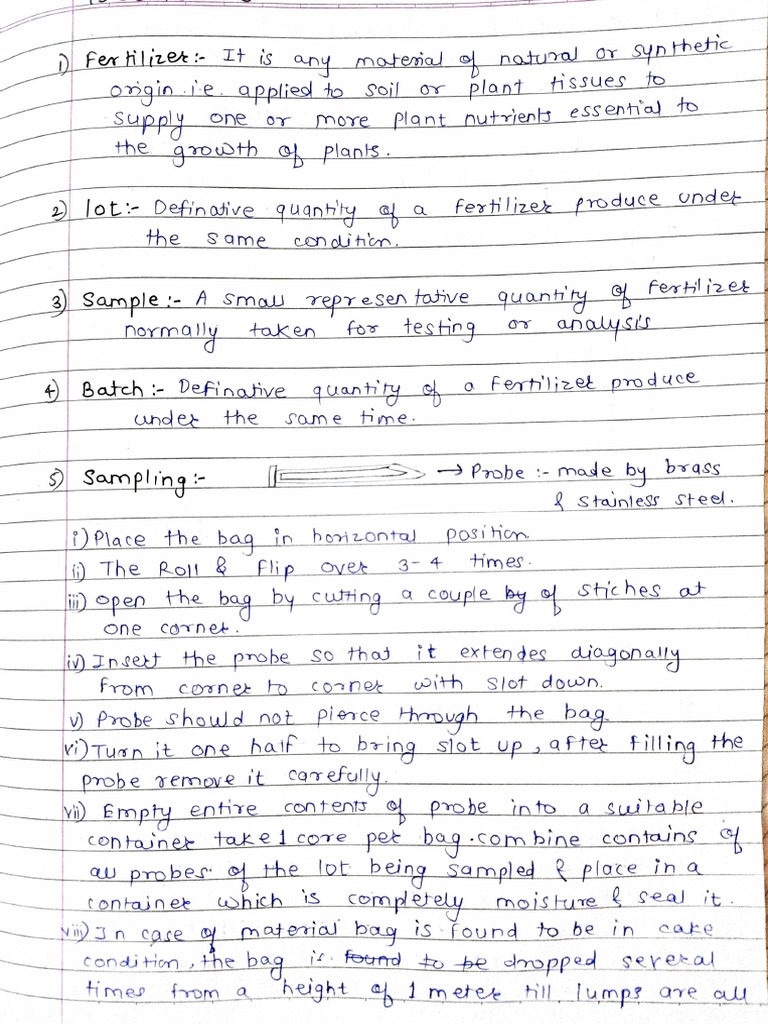 1) Fertilizer:- It is any material of natural or synthetic
origin i.e. applied to soil or plant tissues to
supply one or more plant nutrients essential to
the growth of plants.
2) lot:- Definative quantity of a fertilizer produce under
the same condition.
3) Sample:- A small representative quantity of fertilizer
normally taken for testing or analysis
4) Batch:- Definative quantity of a fertilizer produce
under the same time.
5) Sampling:- → Probe:- made by brass
& stainless steel.
i) Place the bag in horizontal position
ii) The Roll & flip over 3-4 times.
iii) open the bag by cutting a couple by of stiches at
one corner.
iv) Insert the probe so that it extendes diagonally
from corner to corner with slot down.
v) Probe should not pierce through the bag.
vi) Turn it one half to bring slot up, after filling the
probe remove it carefully.
vii) Empty entire contents of probe into a suitable
container take 1 core per bag. combine contains of
all probes of the lot being sampled & place in a
container which is completely moisture & seal it.
viii) In case of material bag is found to be in cake
condition, the bag is found to be dropped several
times from a height of 1 meter till lumps are all